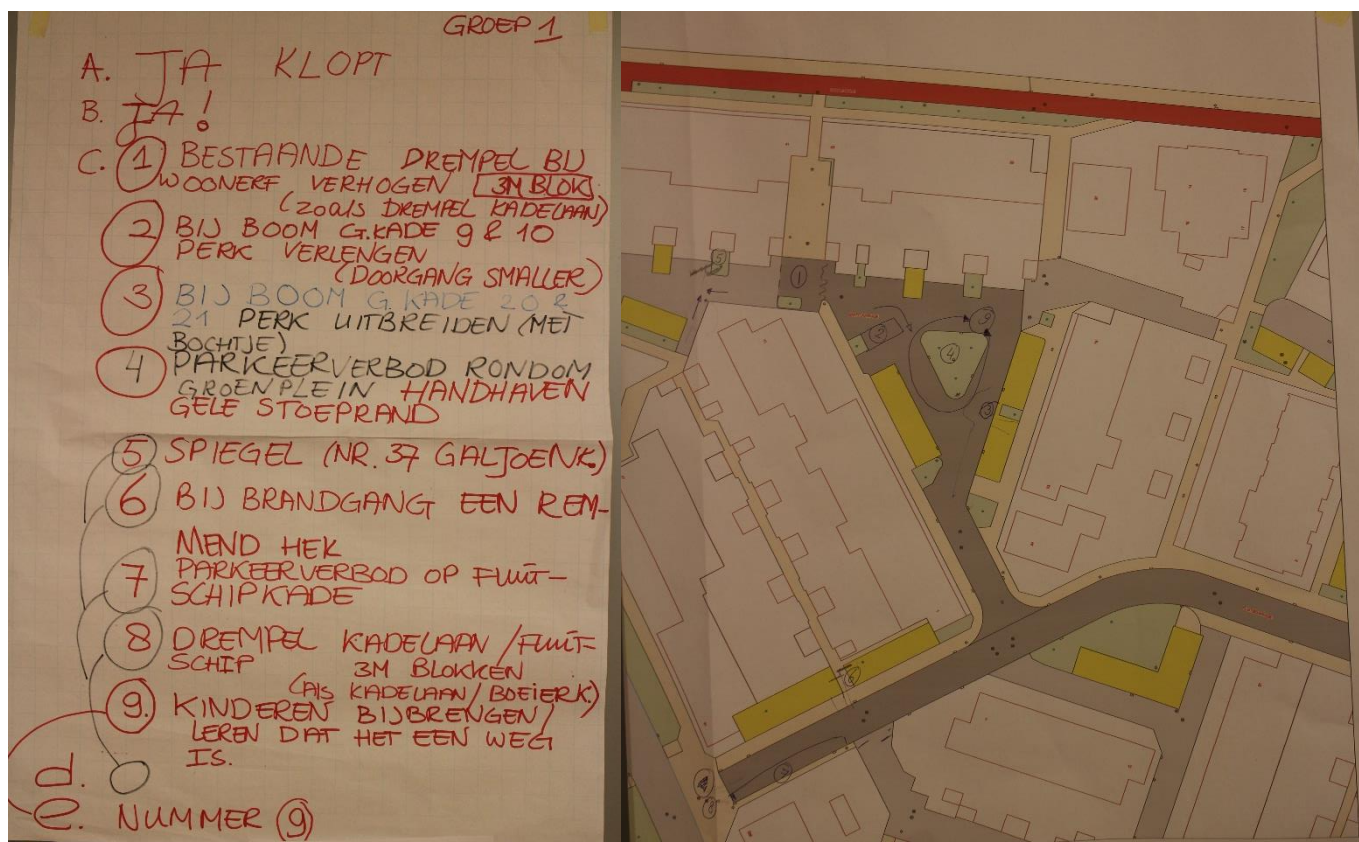 GROEP 1
A. JA KLOPT
B. JA!
C. 1 BESTAANDE DREMPEL BIJ
WOONERF VERHOGEN 3M BLOK
(ZOALS DREMPEL KADELAAN)
2 BIJ BOOM G.KADE 9 & 10
PERK VERLENGEN
(DOORGANG SMALLER)
3 BIJ BOOM G.KADE 20 &
21 PERK UITBREIDEN (MET
BOCHTJE)
4 PARKEERVERBOD RONDOM
GROENPLEIN HANDHAVEN
GELE STOEPRAND
5 SPIEGEL (NR. 37 GALJOENK.)
6 BIJ BRANDGANG EEN REM-
MEND HEK
7 PARKEERVERBOD OP FLUIT-
SCHIPKADE
8 DREMPEL KADELAAN / FLUIT-
SCHIP 3M BLOKKEN
(ALS KADELAAN/BOEIERK.)
9. KINDEREN BIJBRENGEN/
LEREN DAT HET EEN WEG
IS.
d.
e. NUMMER 9
5
1
2
9
4
3
6
7
8